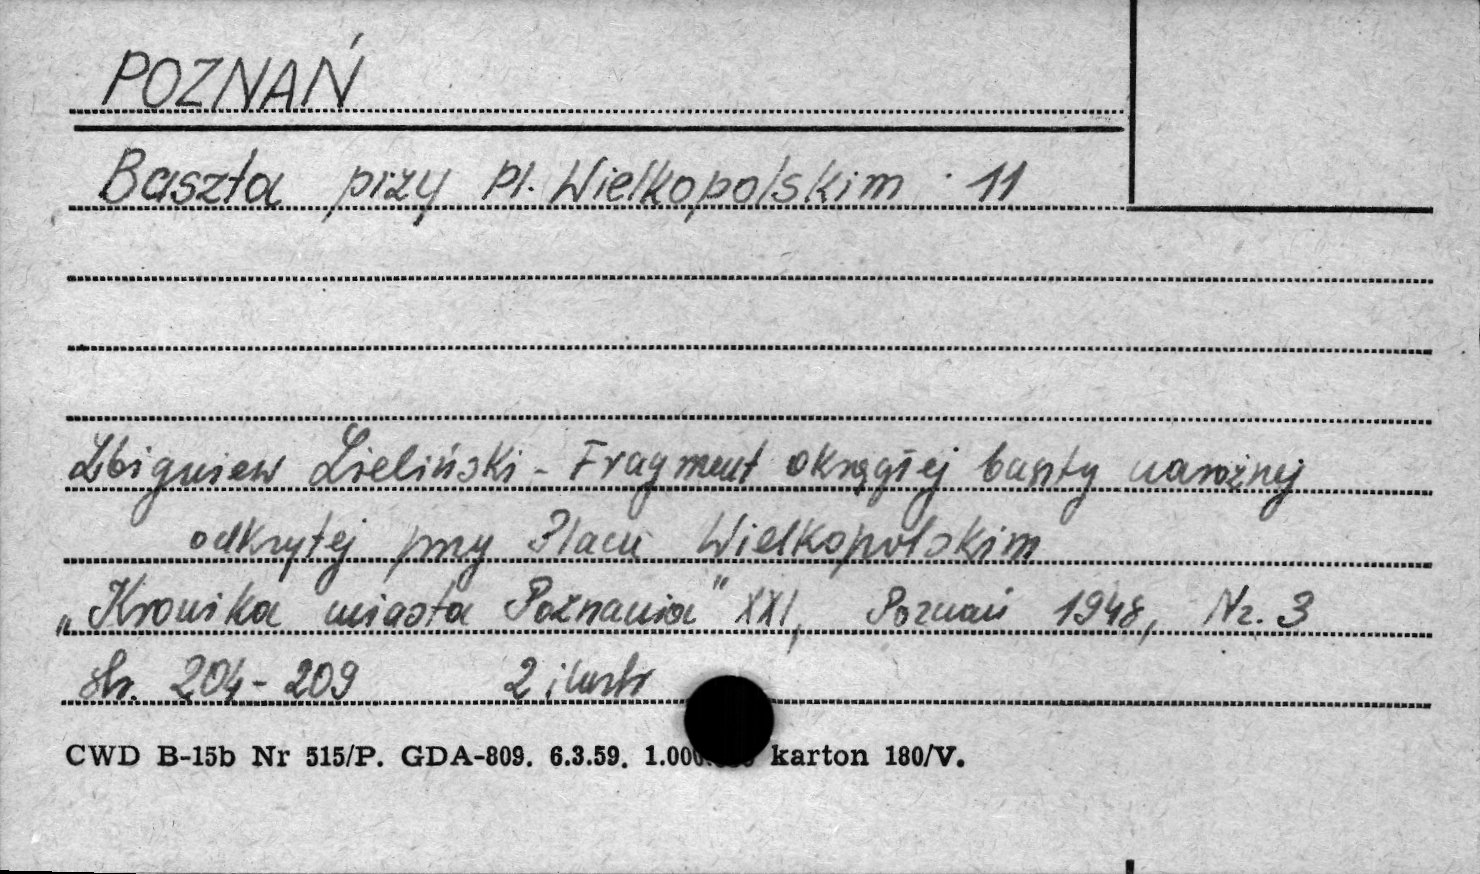 POZNAŃ
Baszta przy Pl. Wielkopolskim 11
Zbigniew Zieliński - Fragment okrągłej baszty narożnej
odkrytej przy Placu Wielkopolskim
„Kronika miasta Poznania" XXI, Poznań 1948, Nr. 3
str. 204-209 2 ilustr
CWD B-15b Nr 515/P. GDA-809. 6.3.59. karton 180/V.